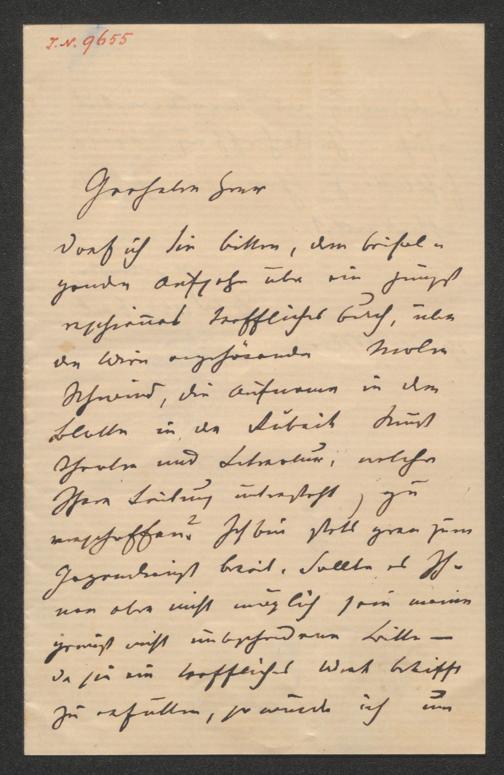 I.N. 9655
Geehrter Herr
Darf ich Sie bitten, den beifol-
genden Aufsatz über ein jüngst
erschienenes treffliches Buch, über
den Wien angehörenden Maler
Schwind, die Aufnahme in dem
Blatte in der Rubrik Kunst
Theater und Literatur, welche
Ihrer Leitung untersteht, zu
verschaffen? Ich bin stets gern zum
Gegendienst bereit. Sollte es Ih-
nen aber nicht möglich sein meine
gewiß nicht unbescheidene Bitte —
da sie ein treffliches Werk betrifft
zu erfüllen, so würde ich um